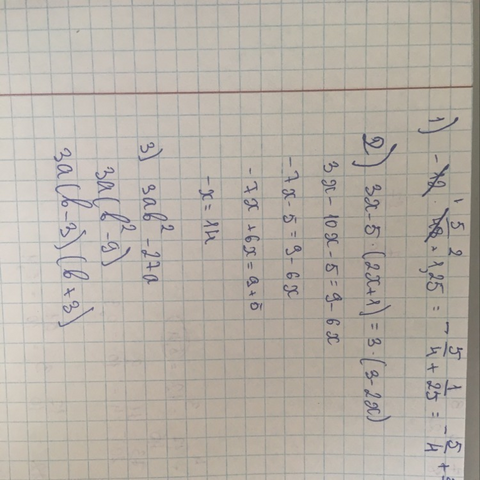 1) - 5/2 + 1,25 = - 5/4 + 1/25 = - 5/4 +
2) 3x-5·(2x+1)=3·(3-2x)
3x-10x-5=9-6x
-7x-5=9-6x
-7x+6x=9+5
-x=14
3) 3ab²-27a
3a(b²-9)
3a(b-3)(b+3)